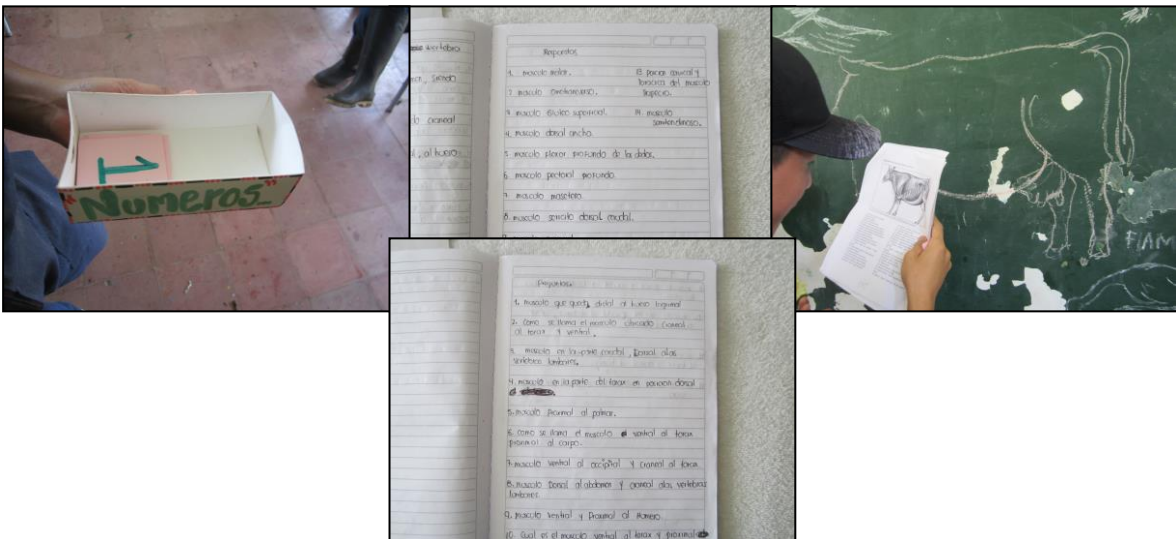 1
"Numeros"
vertebra
craneal
al hueso
Respuestas
1. musculo
2. musculo
3. musculo gluteo superficial.
4. musculo dorsal ancho.
5. musculo flexor profundo de la dedos.
6. musculo pectoral profundo.
7. musculo masetero.
8. musculo serrato dorsal caudal.
13 porcion cervical y
toracica del musculo
trapecio.
14. musculo
semitendinoso.
Preguntas.
1. musculo que queda distal al hueso
2. Como se llama el musculo ubicado craneal
al torax y ventral.
3. musculo en la parte caudal, Dorsal alas
vertebras lumbares.
4. musculo en la parte del torax en posicion dorsal
5. musculo Proximal al palmar.
6. como se llama el musculo ventral al torax
proximal al carpo.
7. musculo ventral al occipital y craneal al torax
8. musculo Dorsal al abdomen y craneal alas vertebras
lumbares
9. musculo ventral y Proximal al Humero.
10. Cual es el musculo ventral al torax y proximal